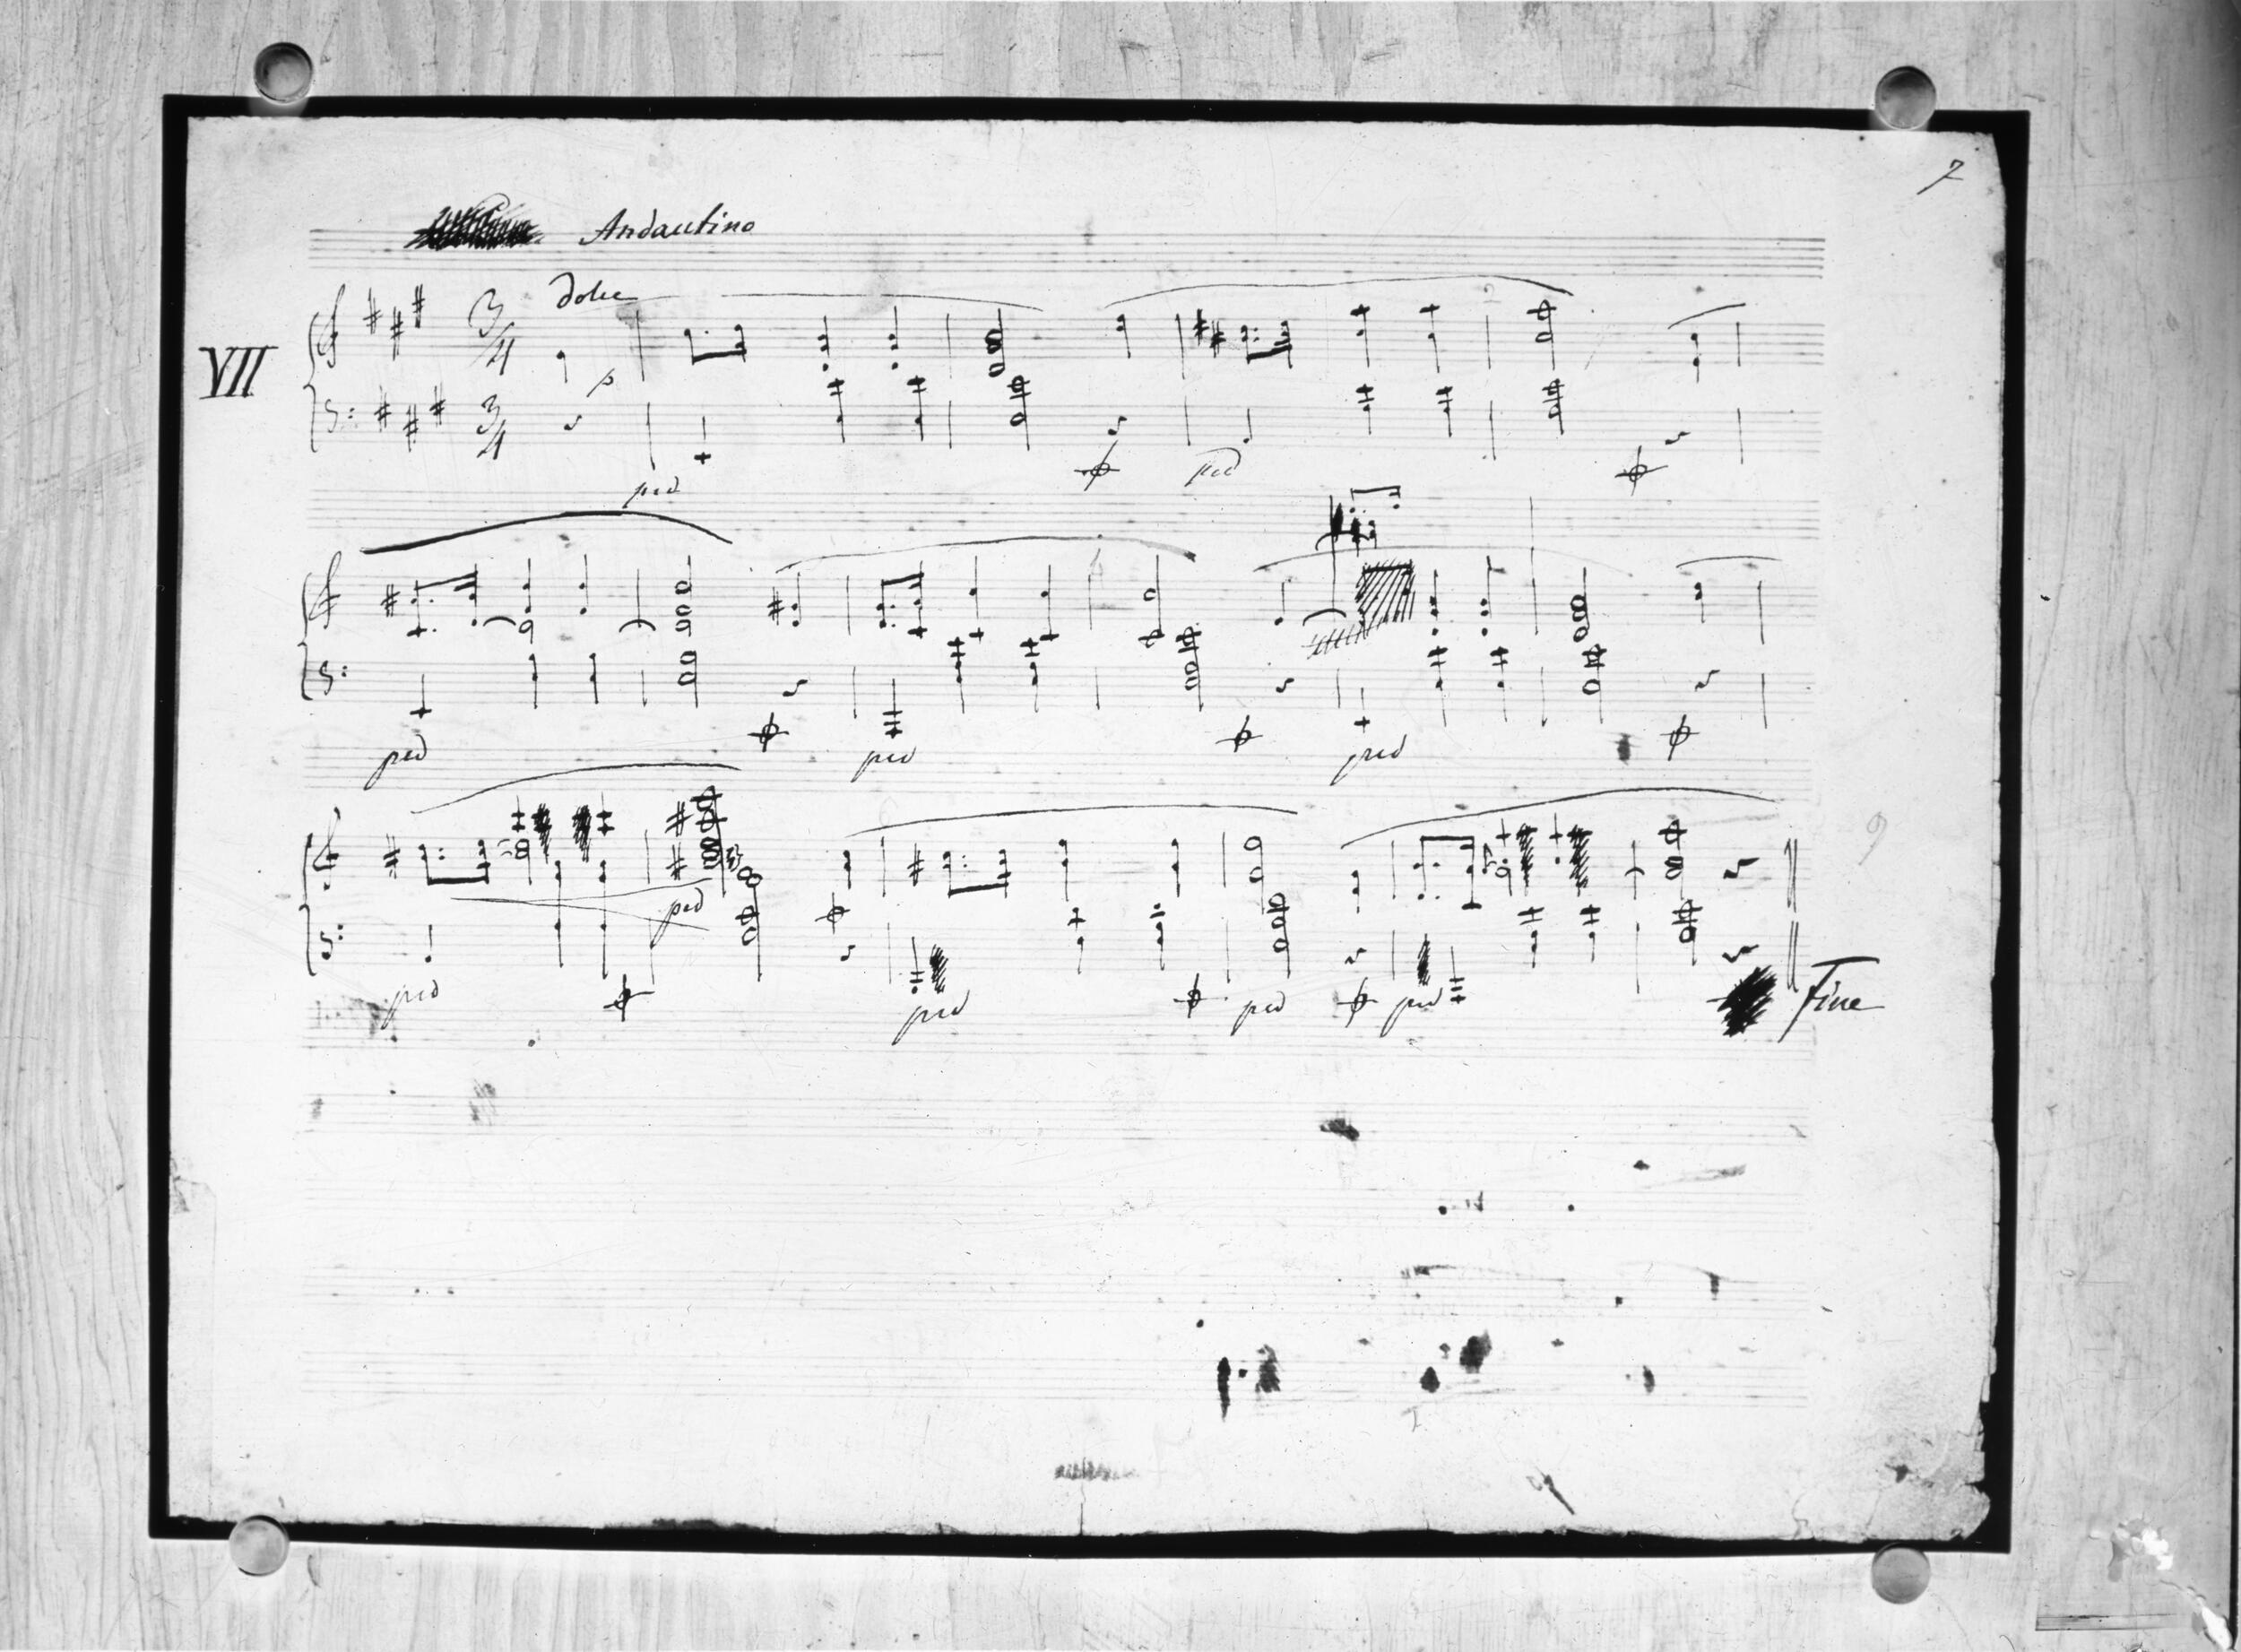 7
Andantino
dolce
VII
3/4
p
3/4
ped
ped
ped
ped
ped
ped
ped
ped
ped
ped
Fine
9